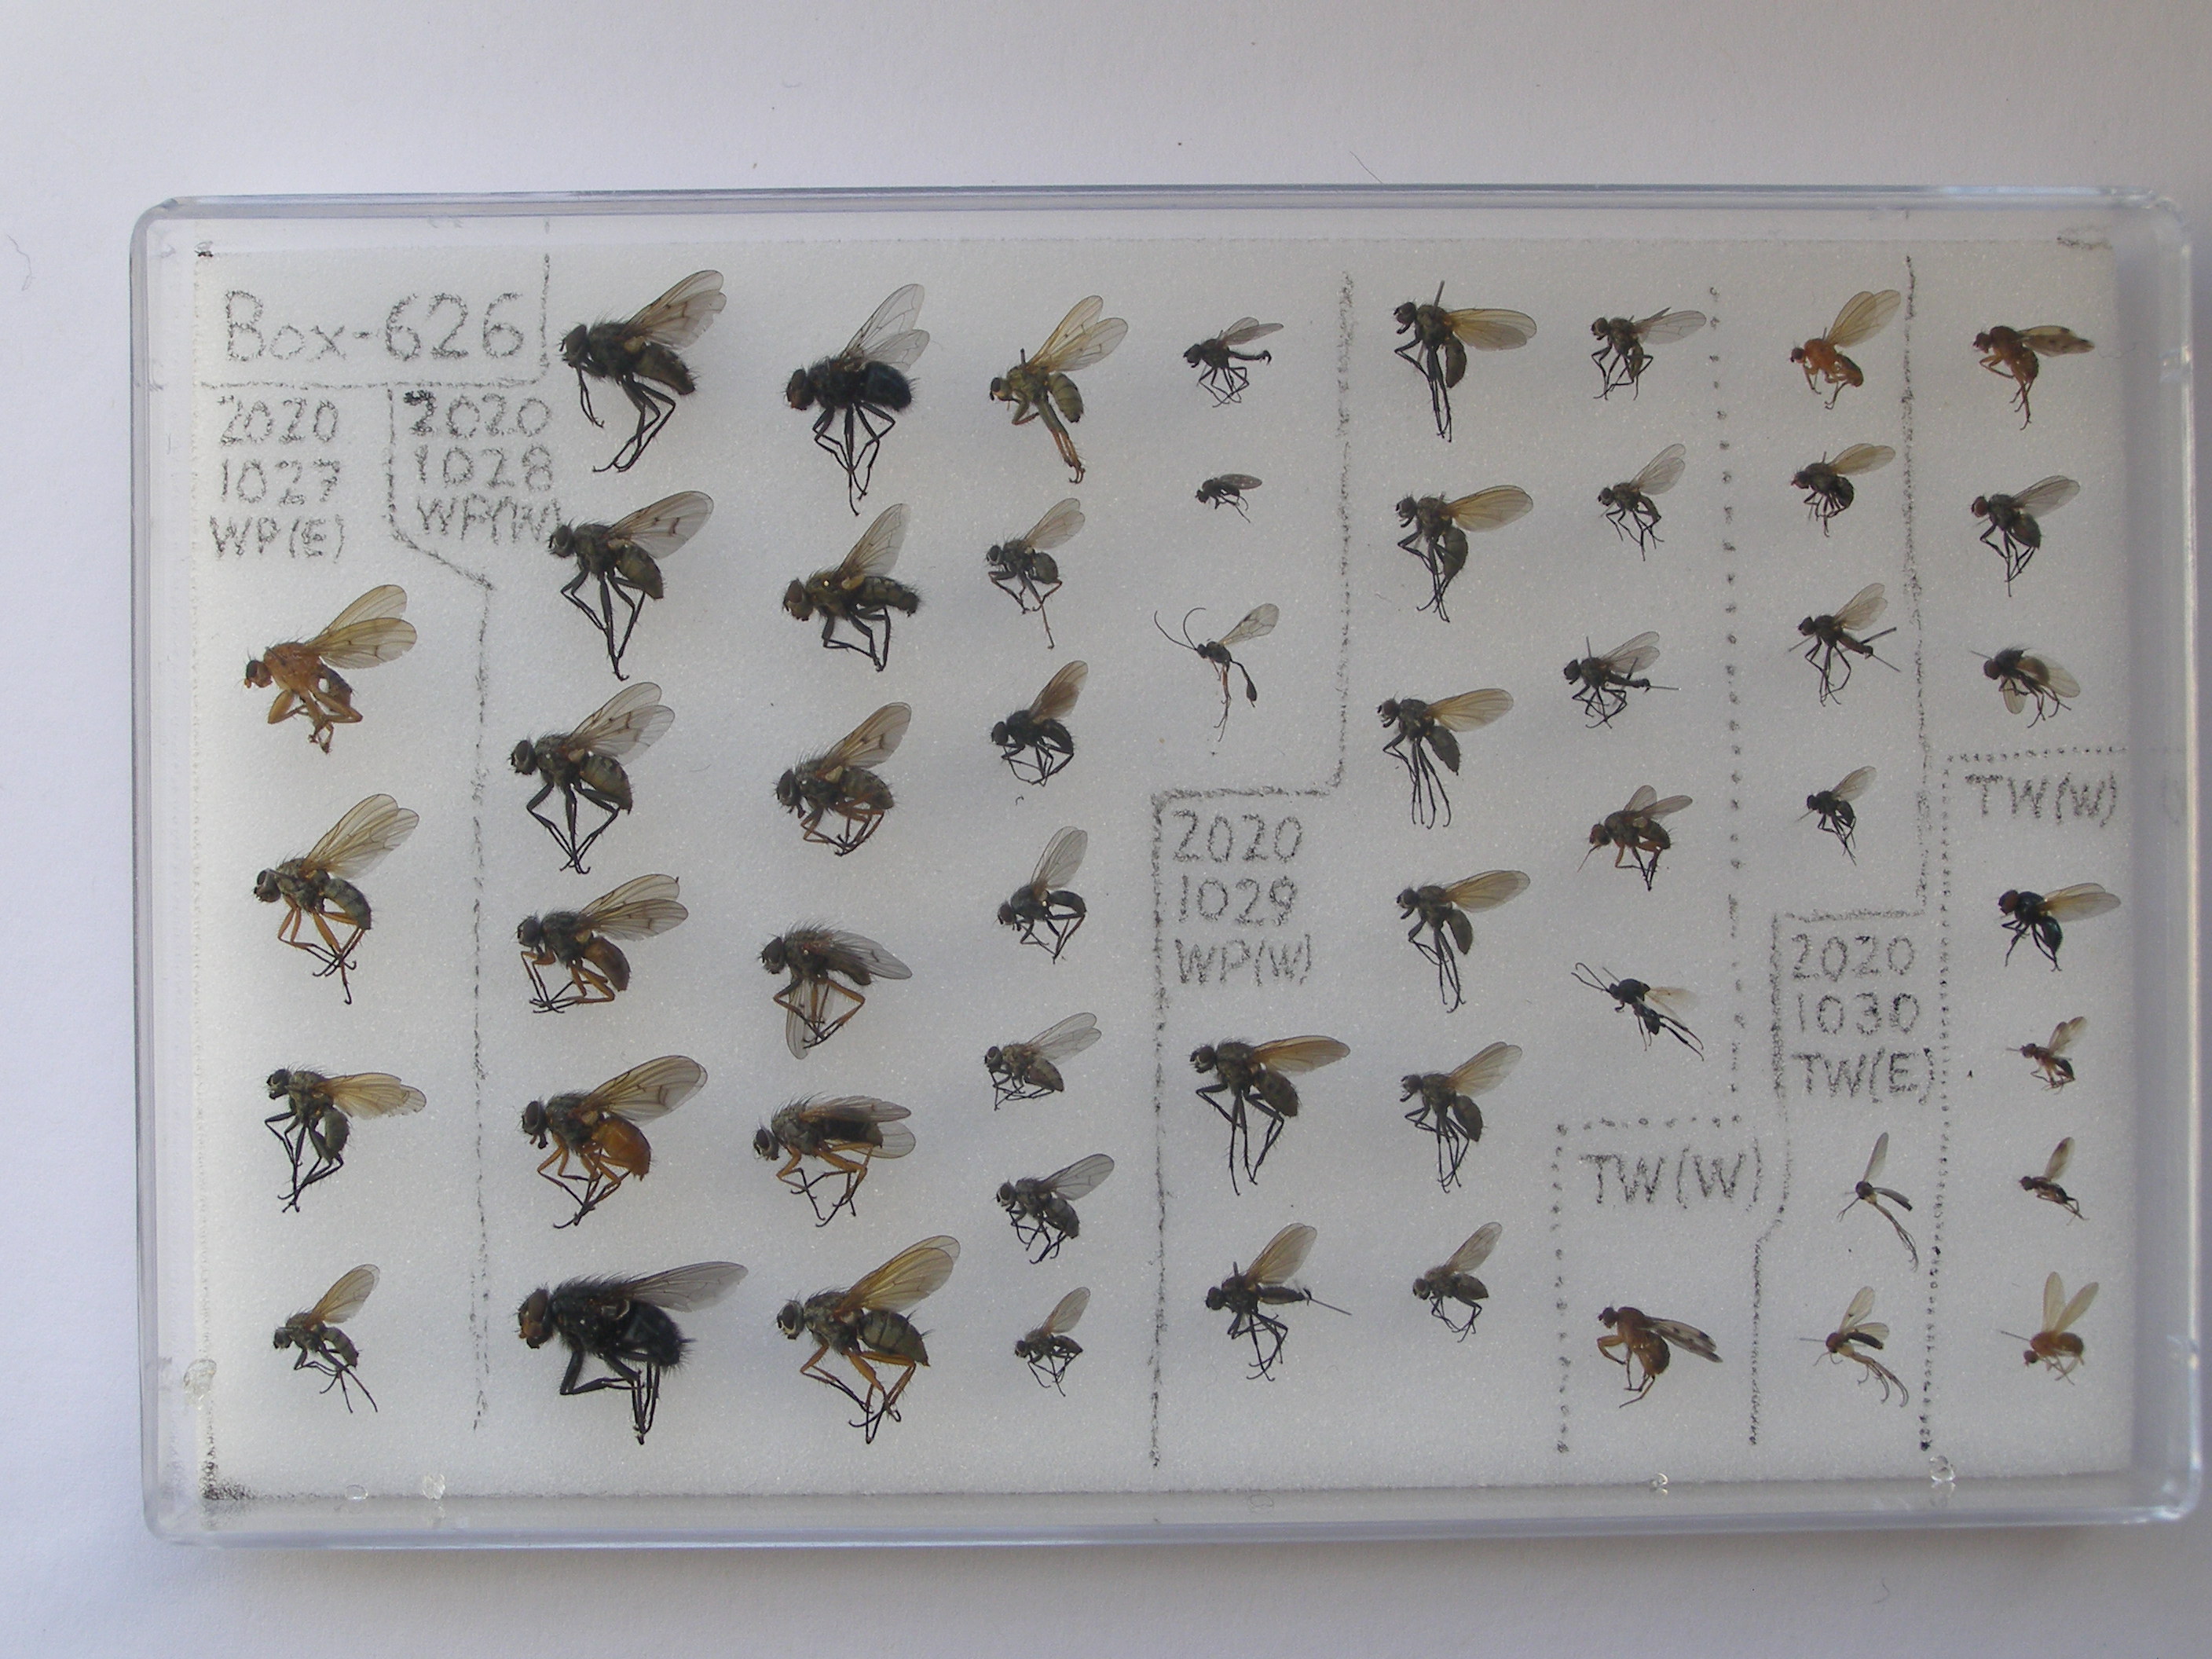 Box-626
2020
1027
WP(E)
2020
1028
WP(W)
2020
1029
WP(W)
TW(W)
2020
1030
TW(E)
TW(W)